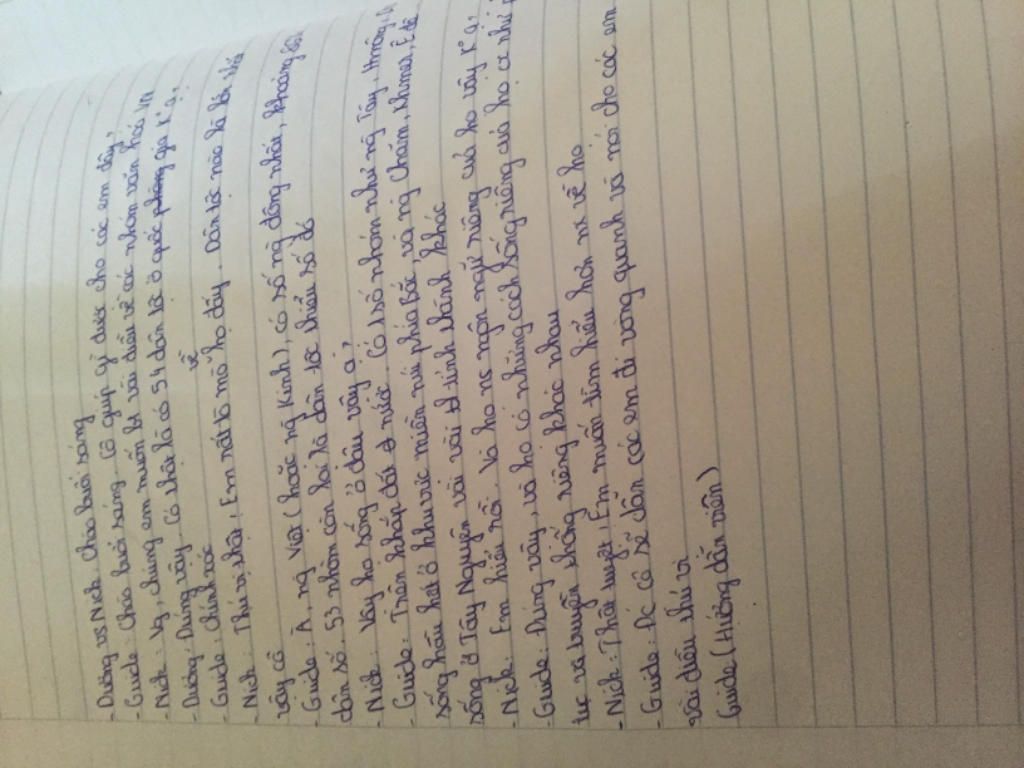 - Dương vs Nick: Chào buổi sáng
- Guide: Chào buổi sáng. Cô giúp gì được cho các em đây,
- Nick: Vg, chúng em muốn bt vài điều về các nhóm văn hóa VN
- Dương: Đúng vậy. Có thật là có 54 dân tộc ở quốc gia k° ạ.
- Guide: Chính xác
- Nick: Thú vị thật! Em rất tò mò về họ đấy. Dân tộc nào là lớn nhất
vậy cô
- Guide: À, ng Việt (hoặc ng Kinh), có số ng đông nhất, khoảng 86%
dân số. 53 nhóm còn lại là dân tộc thiểu số đó
- Nick: Vậy họ sống ở đâu vậy ạ?
- Guide: Trên khắp đất nước. Có 1 số nhóm như ng Tày, Mông
sống hầu hết ở khu vực miền núi phía Bắc, và ng Chăm, Khmer, Ê đê
sống ở Tây Nguyên vài vài tỉnh thành khác
- Nick: Em hiểu rồi. Và họ ns ngôn ngữ riêng của họ vậy k° ạ.
- Guide: Đúng vậy, và họ có những cách sống riêng của họ
tục và truyền thống riêng khác nhau
- Nick: Thật tuyệt! Em muốn tìm hiểu hơn nx về họ
- Guide: Đc cô sẽ dẫn các em đi vòng quanh và nói cho các em
vài điều thú vị
Guide (Hướng dẫn viên)